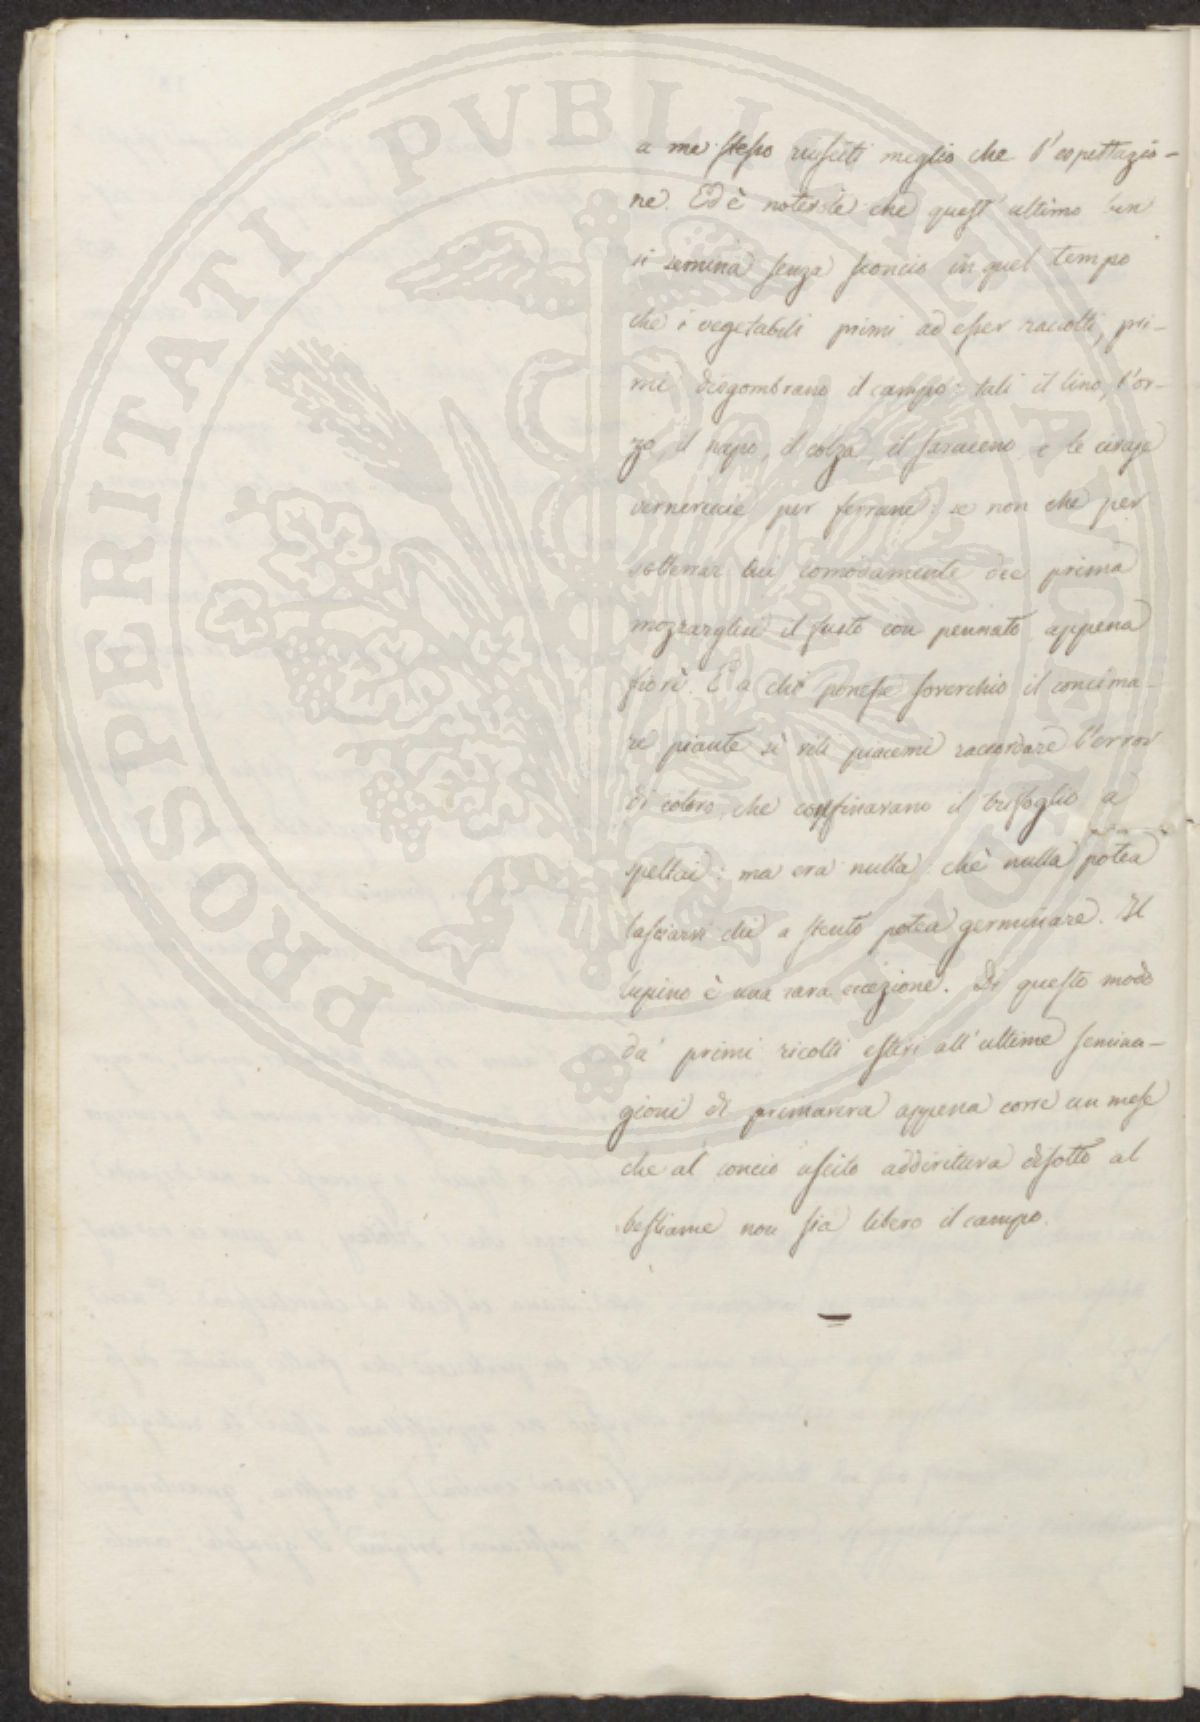 PROSPERITATI PUBLICAE AUGENDAE
a me stesso riusciti meglio che l'espettazio-
ne. Ed è notevole che quest' ultimo ben
si semina senza sconcio in quel tempo
che i vegetabili primi ad esser raccolti, pri-
mi disgombrano il campo: tali il lino, l'or-
zo, il napo, il colza, il saraceno e le civaje
vernereccie per ferrane: se non che per
sotterrar lui comodamente dee prima
mozzarglisi il fusto con pennato appena
fiorì. E a chi ponesse soverchio il concima-
re piante sì vili piacemi raccordare l'error
di coloro, che confinavano il trifoglio a
speltai: ma era nulla: chè nulla potea
lasciarvi chi a stento potea germinare. Il
lupino è una rara eccezione. Di questo modo
da' primi ricolti estivi all' ultime semina-
gioni di primavera appena corre un mese
che al concio uscito addirittura disotto al
bestiame non sia libero il campo.